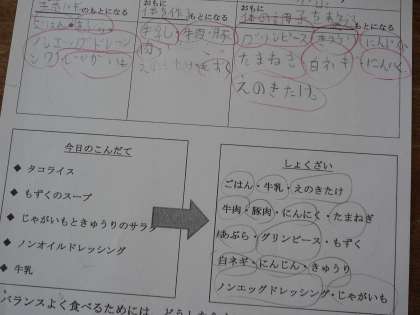 のもとになる
おもに
体を作る もとになる
おもに
もとになる
ごはん
牛乳 牛肉・豚
グリンピース にんにく
ノンエッグドレッシ
肉
たまねぎ 白ネギ
ング じゃがいも
えのきたけ
今日のこんだて
◆ タコライス
◆ もずくのスープ
◆ じゃがいもときゅうりのサラダ
◆ ノンオイルドレッシング
◆ 牛乳
しょくざい
ごはん・牛乳・えのきたけ
牛肉・豚肉・にんにく・たまねぎ
あぶら・グリンピース・もずく
白ネギ・にんじん・きゅうり
ノンエッグドレッシング・じゃがいも
バランスよく食べるためには、どうしたら